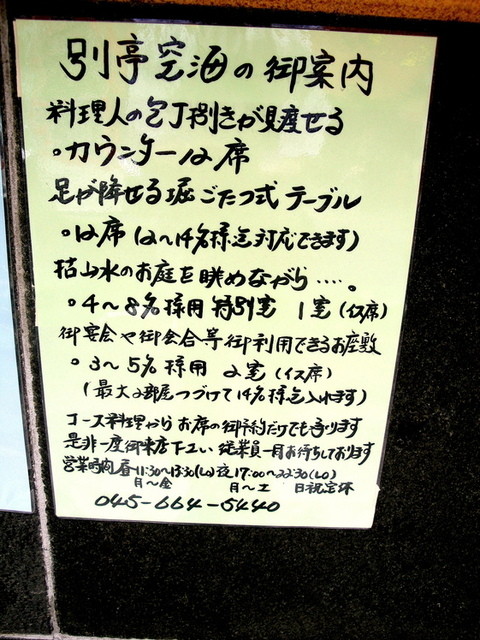 別亭空海の御案内
料理人の包丁捌きが見渡せる
・カウンター12席
足が降せる堀ごたつ式テーブル
・12席(2〜14名様迄対応できます)
枯山水のお庭を眺めながら‥‥。
・4〜8名様用 特別室 1室(イス席)
御宴会や御会合等御利用できるお座敷
・3〜5名様用 2室(イス席)
(最大2部屋つづけて14名様迄入れます)
コース料理から お席の御予約だけでも承ります
是非一度御来店下さい 従業員一同お待ちしております
営業時間 昼11:30〜13:30(LO)夜17:00〜22:30(LO)
月〜金 月〜土 日祝定休
045-664-5440